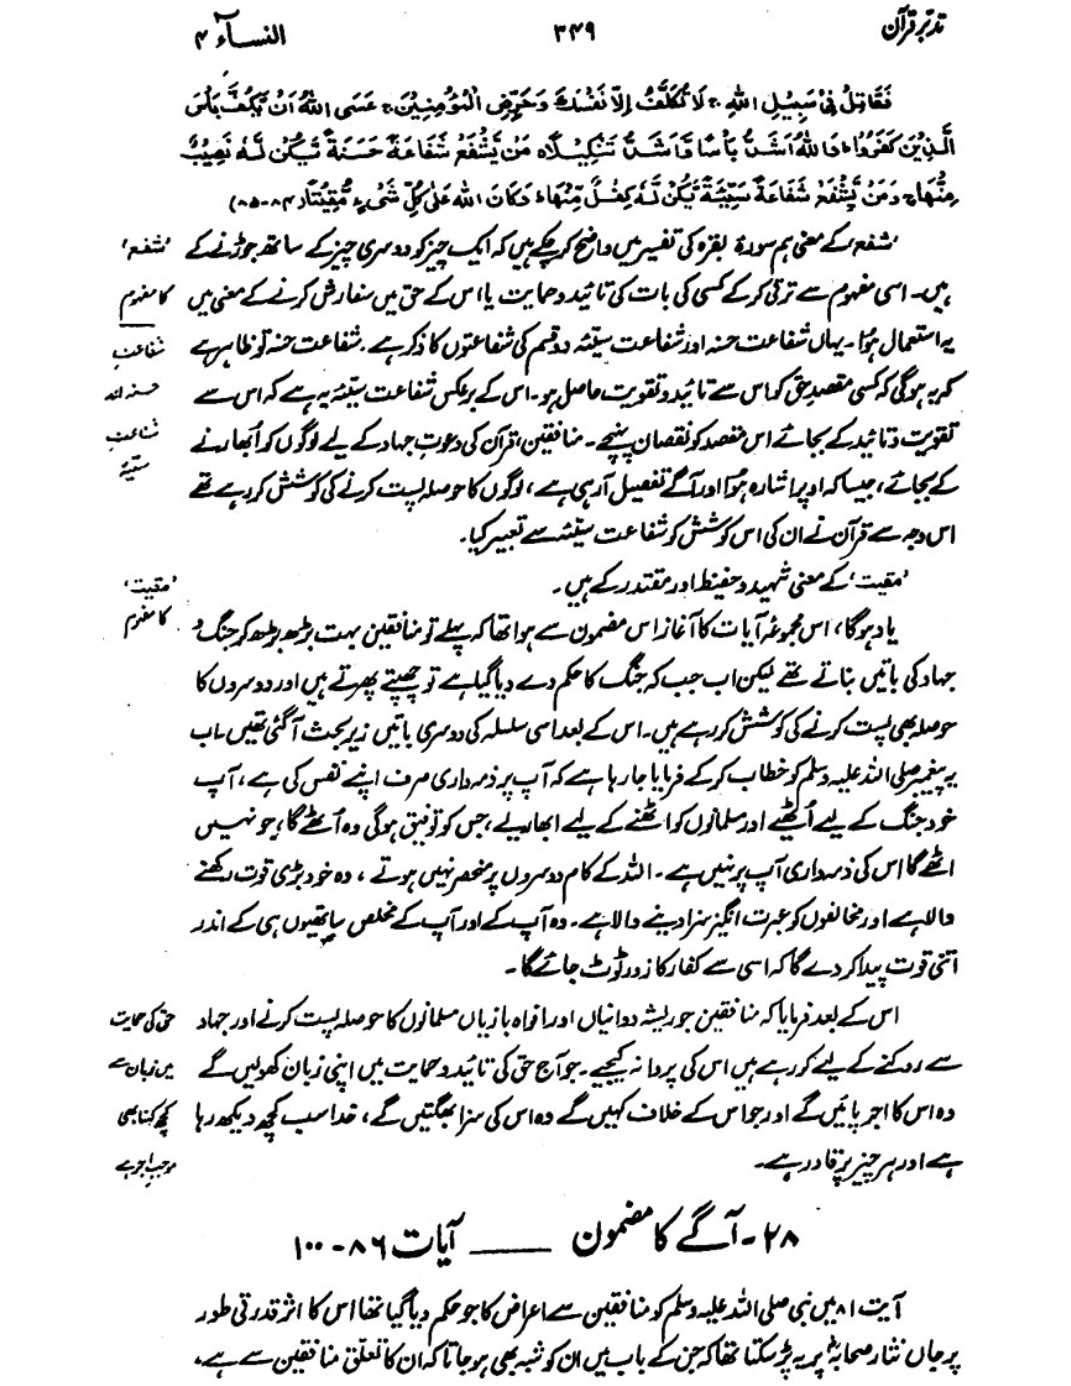 تدبر قرآن ۳۴۹ النسآء ۴
فَقَاتِلْ فِیْ سَبِیْلِ اللّٰهِ ج لَا تُكَلَّفُ اِلَّا نَفْسَكَ وَحَرِّضِ الْمُؤْمِنِیْنَ ج عَسَی اللّٰهُ اَنْ یَّكُفَّ بَاْسَ
الَّذِیْنَ كَفَرُوْا ط وَاللّٰهُ اَشَدُّ بَاْسًا وَّاَشَدُّ تَنْكِیْلًا ہ مَنْ یَّشْفَعْ شَفَاعَةً حَسَنَةً یَّكُنْ لَّهٗ نَصِیْبٌ
مِّنْهَا ج وَمَنْ یَّشْفَعْ شَفَاعَةً سَیِّئَةً یَّكُنْ لَّهٗ كِفْلٌ مِّنْهَا ط وَكَانَ اللّٰهُ عَلٰی كُلِّ شَیْءٍ مُّقِیْتًا (۸۴-۸۵)
’شفع‘ کے معنی ہم سورۂ بقرہ کی تفسیر میں واضح کر چکے ہیں کہ ایک چیز کو دوسری چیز کے ساتھ جوڑنے کے
’شفع‘
ہیں۔ اسی مفہوم سے ترقی کر کے کسی کی بات کی تائید و حمایت یا اس کے حق میں سفارش کرنے کے معنی میں
کا مفہوم
یہ استعمال ہوا۔ یہاں شفاعت حسنہ اور شفاعت سیّئہ دو قسم کی شفاعتوں کا ذکر ہے۔ شفاعت حسنہ تو ظاہر ہے
شفاعتِ
کہ یہ ہوگی کہ کسی مقصدِ حق کو اس سے تائید و تقویت حاصل ہو۔ اس کے برعکس شفاعت سیّئہ یہ ہے کہ اس سے
حسنہ اور
تقویت و تائید کے بجائے اس مقصد کو نقصان پہنچے۔ منافقین، قرآن کی دعوتِ جہاد کے لیے لوگوں کو اُبھارنے
شفاعتِ
کے بجائے، جیسا کہ اوپر اشارہ ہوا اور آگے تفصیل آ رہی ہے، لوگوں کا حوصلہ پست کرنے کی کوشش کر رہے تھے
سیّئہ
اس وجہ سے قرآن نے ان کی اس کوشش کو شفاعت سیّئہ سے تعبیر کیا۔
’مقیت‘ کے معنی شہید و حفیظ اور مقتدر کے ہیں۔
’مقیت‘
یاد ہوگا، اس مجموعۂ آیات کا آغاز اس مضمون سے ہوا تھا کہ پہلے تو منافقین بہت بڑھ بڑھ کر جنگ و
کا مفہوم
جہاد کی باتیں بناتے تھے لیکن اب جب کہ جنگ کا حکم دے دیا گیا ہے تو چھپتے پھرتے ہیں اور دوسروں کا
حوصلہ بھی پست کرنے کی کوشش کر رہے ہیں۔ اس کے بعد اسی سلسلہ کی دوسری باتیں زیر بحث آ گئی تھیں۔ اب
یہ پیغمبر صلی اللہ علیہ وسلم کو خطاب کر کے فرمایا جا رہا ہے کہ آپ پر ذمہ داری صرف اپنے نفس کی ہے، آپ
خود جنگ کے لیے اُٹھیے اور مسلمانوں کو اٹھنے کے لیے ابھاریے، جس کو توفیق ہوگی وہ اُٹھے گا، جو نہیں
اٹھے گا اس کی ذمہ داری آپ پر نہیں ہے۔ اللہ کے کام دوسروں پر منحصر نہیں ہوتے، وہ خود بڑی قوت رکھنے
والا ہے اور مخالفوں کو عبرت انگیز سزا دینے والا ہے۔ وہ آپ کے اور آپ کے مخلص ساتھیوں ہی کے اندر
اتنی قوت پیدا کر دے گا کہ اسی سے کفار کا زور ٹوٹ جائے گا۔
اس کے بعد فرمایا کہ منافقین جو ریشہ دوانیاں اور افواہ بازیاں مسلمانوں کا حوصلہ پست کرنے اور جہاد
حق کی حمایت
سے روکنے کے لیے کر رہے ہیں اس کی پروا نہ کیجیے۔ جو آج حق کی تائید و حمایت میں اپنی زبان کھولیں گے
میں زبان سے
وہ اس کا اجر پائیں گے اور جو اس کے خلاف کہیں گے وہ اس کی سزا بھگتیں گے، خدا سب کچھ دیکھ رہا
کچھ کہنا بھی
ہے اور ہر چیز پر قادر ہے۔
موجب اجر ہے
۲۸۔ آگے کا مضمون ــــــــ آیات ۸۶-۱۰۰
آیت ۸۱ میں نبی صلی اللہ علیہ وسلم کو منافقین سے اعراض کا جو حکم دیا گیا تھا اس کا اثر قدرتی طور
پر جاں نثار صحابہؓ پر یہ پڑ سکتا تھا کہ جن کے باب میں ان کو شبہ بھی ہو جاتا کہ ان کا تعلق منافقین سے ہے،